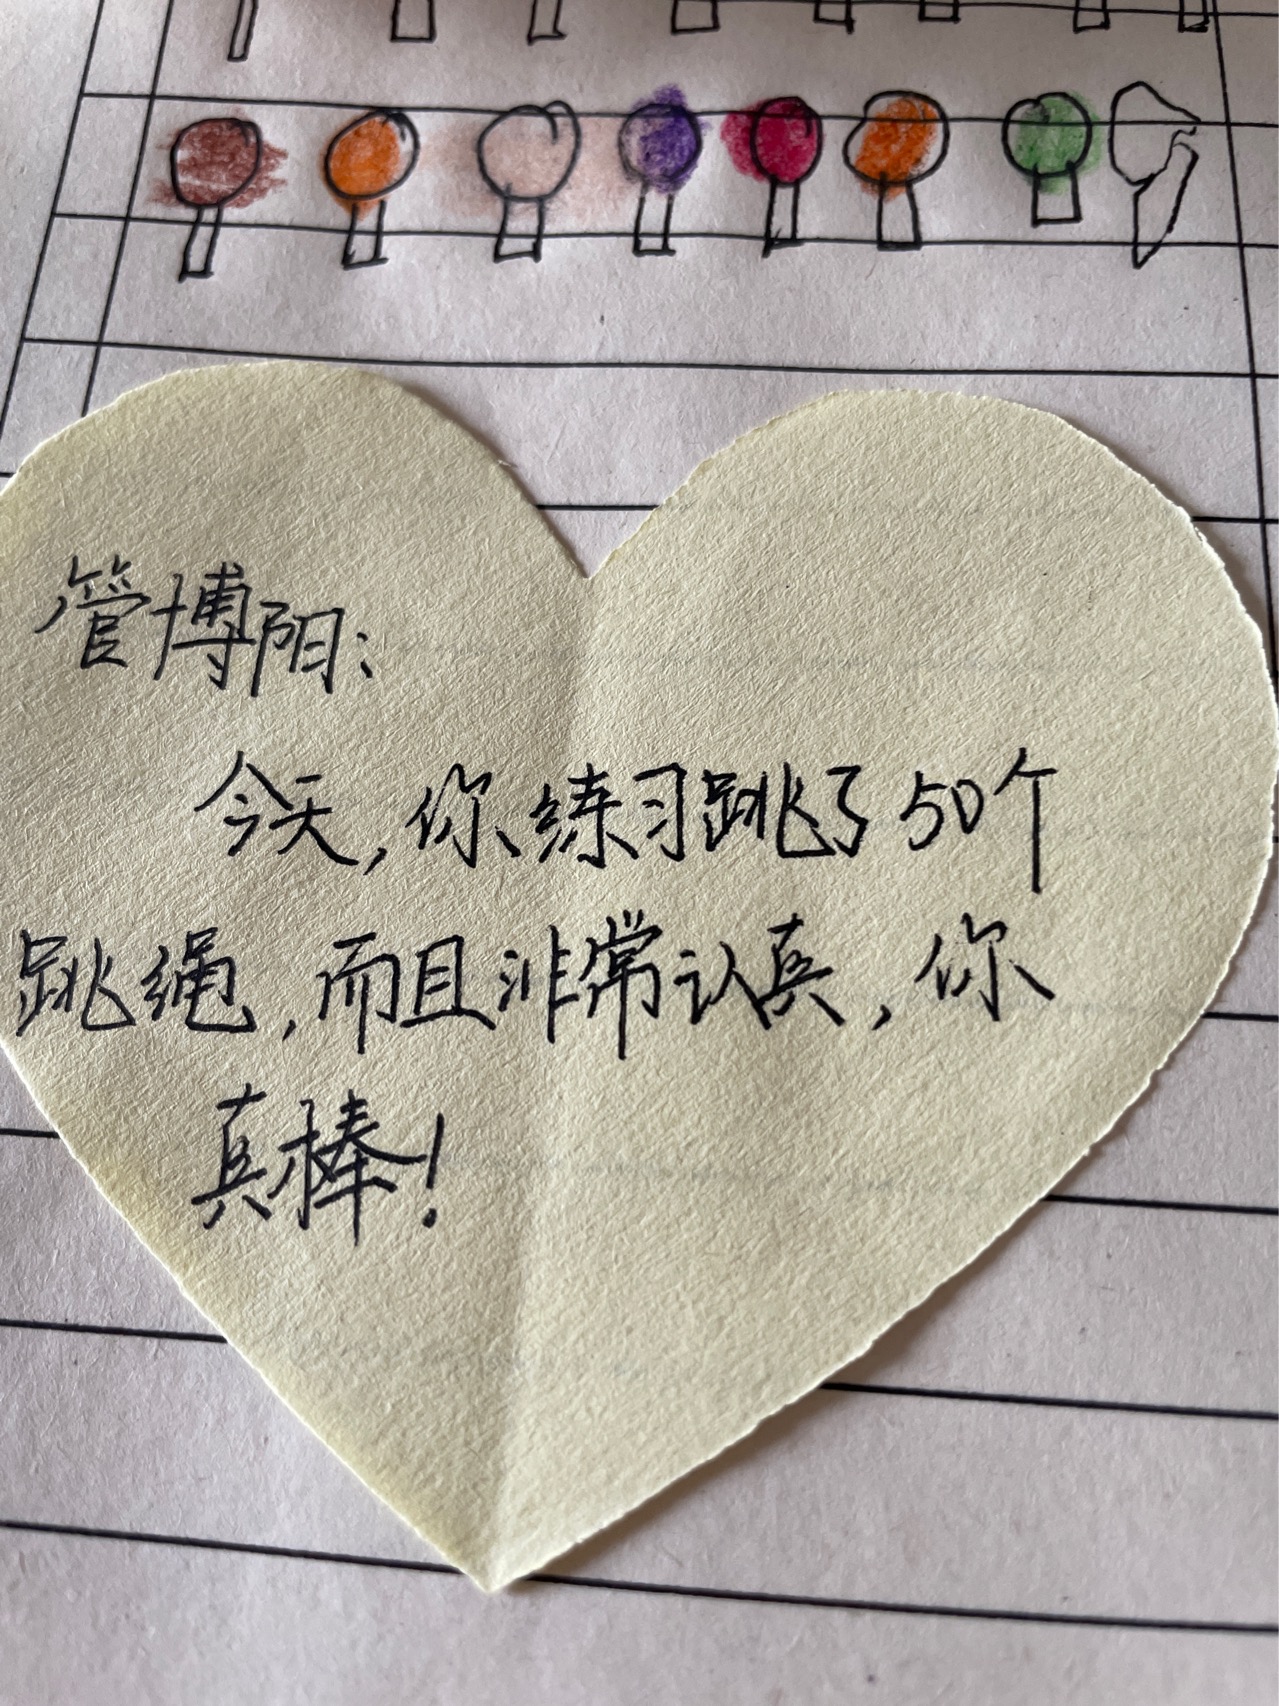 管博阳：
今天，你练习跳了50个
跳绳，而且非常认真，你
真棒！